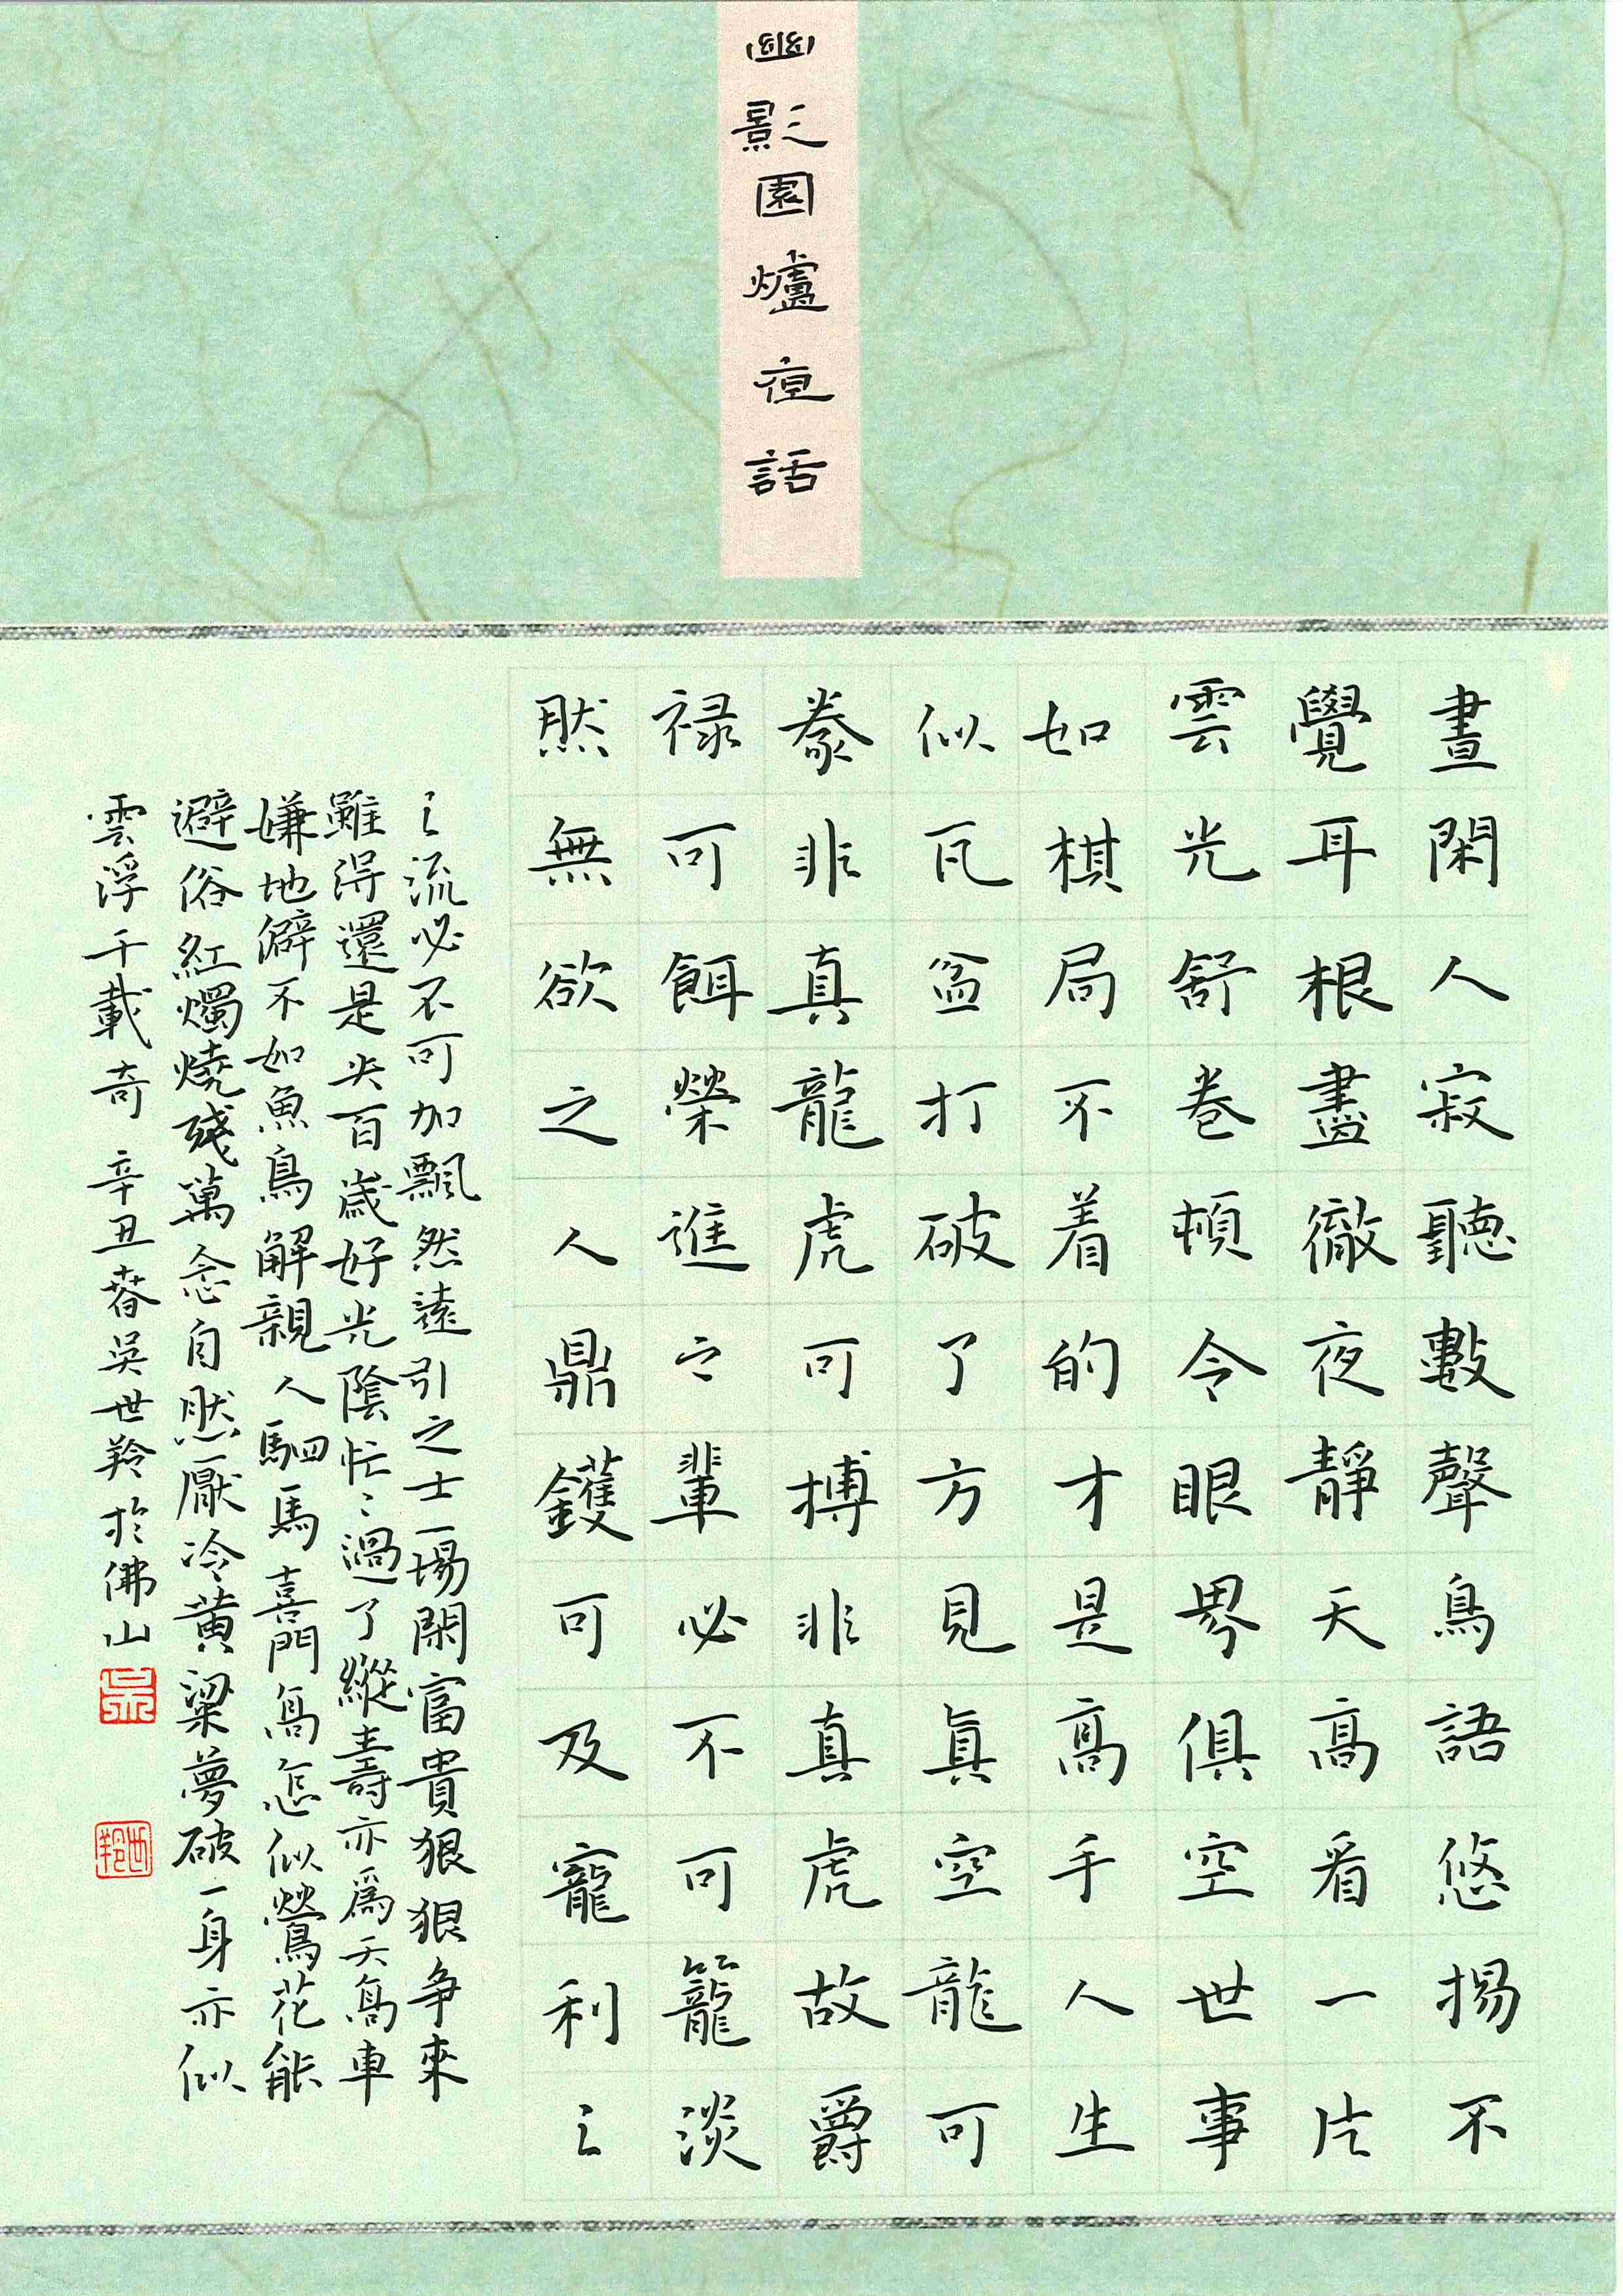 幽影園爐夜話
晝閑人寂聽數聲鳥語悠揚不
覺耳根盡徹夜靜天高看一片
雲光舒卷頓令眼界俱空世事
如棋局不着的才是高手人生
似瓦盆打破了方見真空龍可
豢非真龍虎可搏非真虎故爵
祿可餌榮進之輩必不可籠淡
然無欲之人鼎鑊可及寵利之
之流必不可加飄然遠引之士一場閑富貴狠狠争來
雖得還是失百歲好光陰忙忙過了縱壽亦爲夭高車
嫌地僻不如魚鳥解親人駟馬喜門高怎似鶯花能
避俗紅燭燒殘萬念自然厭冷黄粱夢破一身亦似
雲浮千載奇 辛丑春吴世羚於佛山
吴
世羚